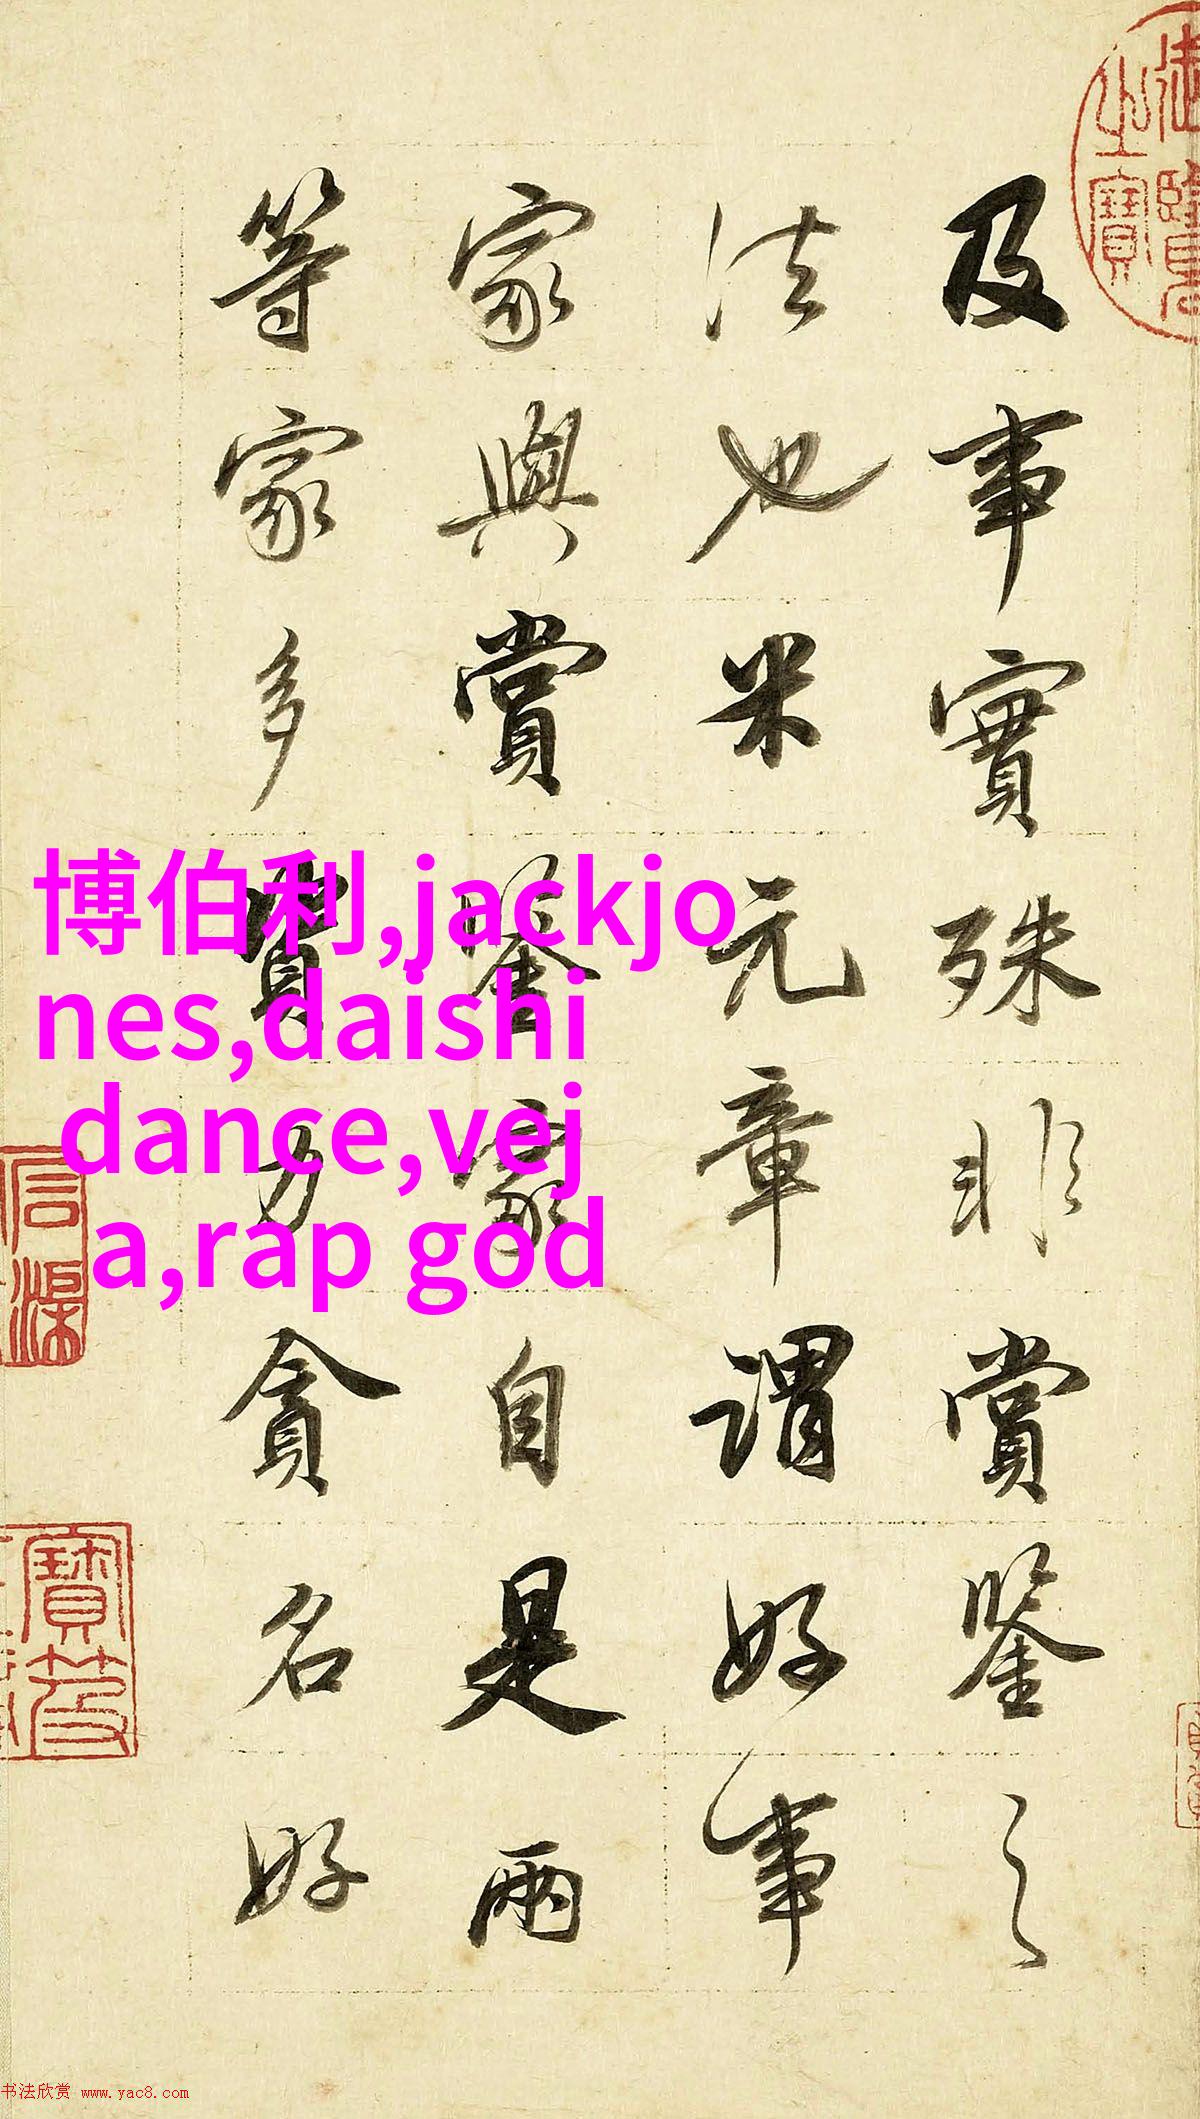 及事實殊非賞鑒之
法也米元章謂好事
家與賞鑒家自是兩
等家多資力貪名好
博伯利,jackjo
nes,daishi
dance,vej
a,rap god
御覽
之寶
寶
书法欣赏 www.yac8.com